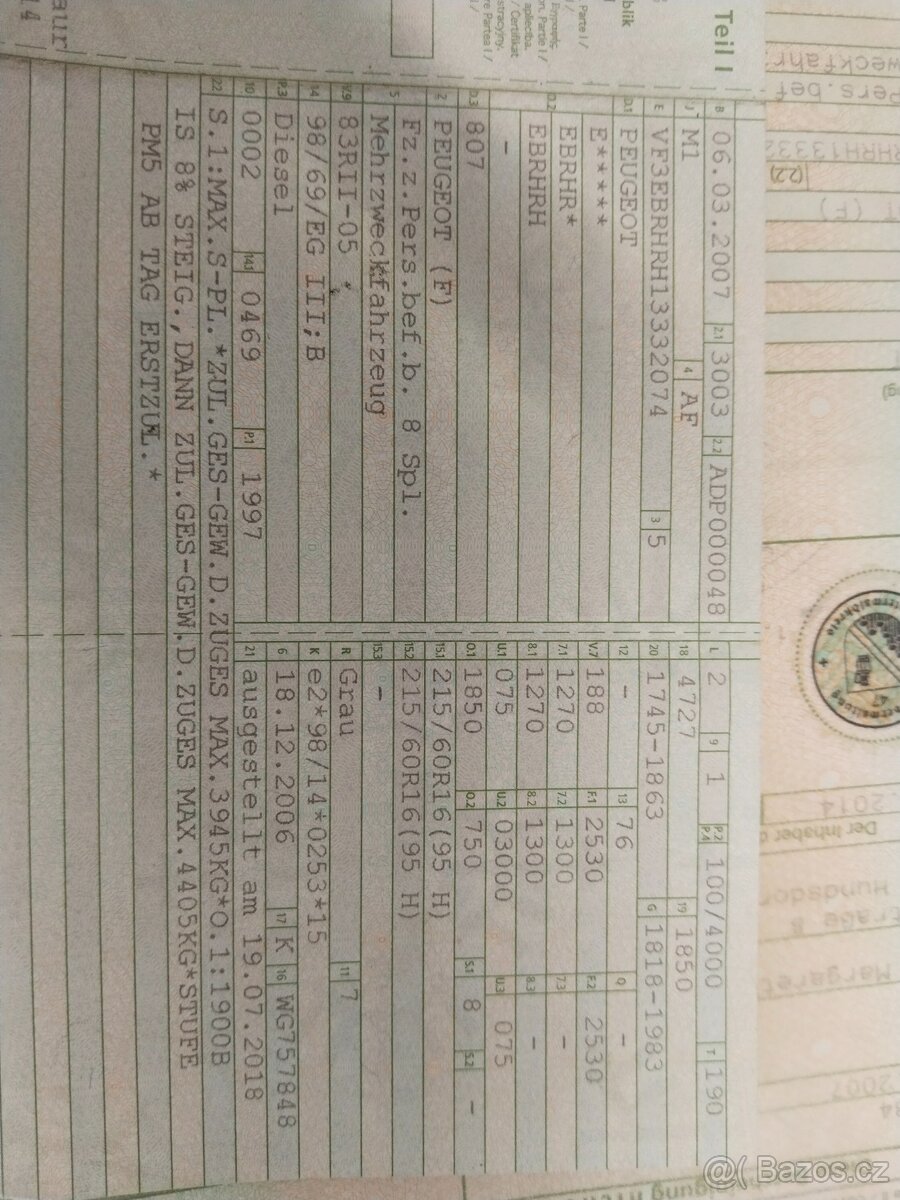 Teil I
blik
Parte I /
B 06.03.2007 2.1 3003 2.2 ADP000048
J M1 4 AF
E VF3EBRHRH13332074 3 5
D.1 PEUGEOT
E*****
D.2 EBRHR*
EBRHRH
-
D.3 807
2 PEUGEOT (F)
5 Fz.z.Pers.bef.b. 8 Spl.
Mehrzweckfahrzeug
V.9 83RII-05
14 98/69/EG III;B
P.3 Diesel
10 0002 14.1 0469 P.1 1997
L 2 9 1 P.2 P.4 100/4000 T 190
18 4727 19 1850
20 1745-1863 G 1818-1983
12 - 13 76 Q -
V.7 188 F.1 2530 F.2 2530
7.1 1270 7.2 1300 7.3 -
8.1 1270 8.2 1300 8.3 -
U.1 075 U.2 03000 U.3 075
O.1 1850 O.2 750 S.1 8 S.2 -
15.1 215/60R16(95 H)
15.2 215/60R16(95 H)
15.3 -
R Grau 11 7
K e2*98/14*0253*15
6 18.12.2006 17 K 16 WG757848
21 ausgestellt am 19.07.2018
22 S.1:MAX.S-PL.*ZUL.GES-GEW.D.ZUGES MAX.3945KG*O.1:1900B
IS 8% STEIG.,DANN ZUL.GES-GEW.D.ZUGES MAX.4405KG*STUFE
PM5 AB TAG ERSTZUL.*
aur
14
2014
Der Inhaber d
Hundsdor
raße 8
Margaret
2007
@( Bazos.cz